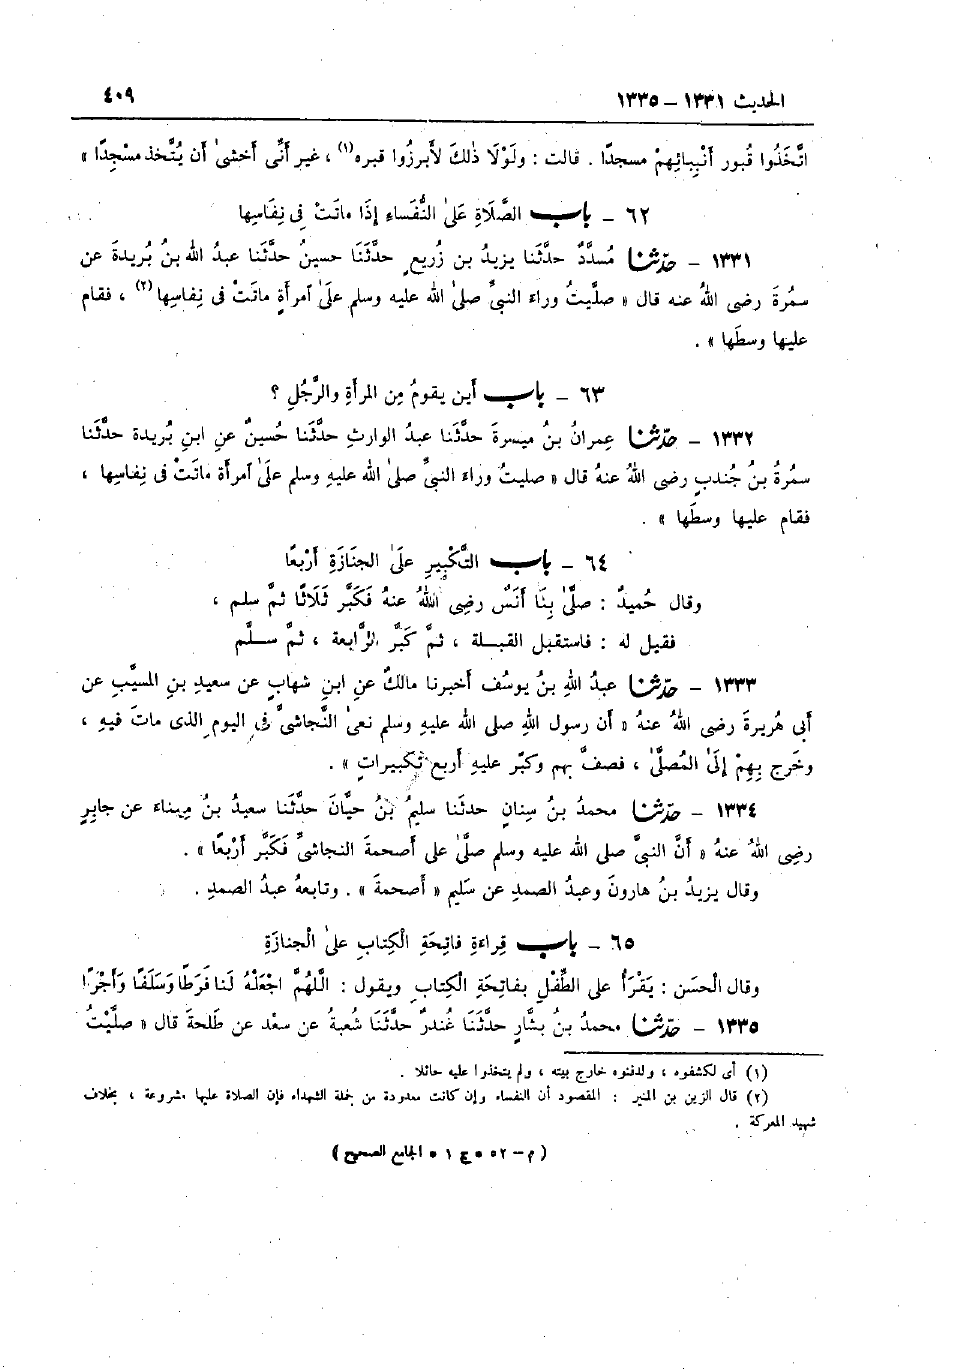 الحديث ١٣٣١ – ١٣٣٥
٤٠٩
اتَّخَذُوا قُبور أَنْبِيائِهِمْ مسجدًا . قالت : ولَوْلَا ذٰلكَ لأَبرزُوا قبره(١) ، غير أَنِّى أَخشىٰ أَن يُتَّخذ مسْجِدًا »
٦٢ – باب الصَّلاةِ علىٰ النُّفَساءِ إِذَا ماتَتْ فِى نِفَاسِها
١٣٣١ – حدّثنا مُسدَّدٌ حدَّثَنا يزيدُ بن زُريعٍ حدَّثَنَا حسينُ حدَّثَنا عبدُ الله بنُ بُريدةَ عن
سمُرةَ رضى اللهُ عنه قال « صلَّيتُ وراء النبىِّ صلىٰ الله عليه وسلم علَىٰ آمرأَةٍ ماتَتْ فى نِفاسِها(٢) ، فقام
عليها وسطَها » .
٦٣ – باب أَين يقومُ مِن المرأَةِ والرَّجُلِ ؟
١٣٣٢ – حدّثنا عِمرانُ بنُ ميسرةَ حدَّثَنا عبدُ الوارثِ حدَّثَنا حُسينٌ عنِ ابنِ بُريدة حدَّثَنا
سمُرةُ بنُ جُندبٍ رضى اللهُ عنهُ قال « صليتُ وراء النبىِّ صلىٰ اللهُ عليهِ وسلم علَىٰ آمرأَة ماتَتْ فى نِفاسِها ،
فقام عليها وسطَها » .
٦٤ – باب التَّكْبِيرِ علَىٰ الجنَازَةِ أَرْبعًا
وقال حُميدٌ : صلَّىٰ بِنَا أَنَسٌ رضِى اللهُ عنهُ فَكَبَّر ثَلَاثًا ثمَّ سلم ،
فقيل له : فاستقبل القبـلـة ، ثمَّ كَبَّر الرَّابعة ، ثمَّ ســلَّم
١٣٣٣ – حدّثنا عبدُ اللهِ بنُ يوسُف أخبرنا مالكٌ عنِ ابنِ شهابٍ عن سعيدِ بنِ المسيَّبِ عن
أبى هُريرةَ رضى اللهُ عنهُ « أَن رسول اللهِ صلى الله عليهِ وسلم نعىٰ النَّجاشىَّ فِى اليومِ الذى ماتَ فيهِ ،
وخَرج بِهِمْ إِلَىٰ المُصلَّىٰ ، فصفَّ بهم وكبَّر عليهِ أَربع تكبيراتٍ » .
١٣٣٤ – حدّثنا محمدُ بنُ سِنانٍ حدثَنا سليمُ بنُ حيَّانَ حدَّثَنا سعيدُ بنُ مِيناء عن جابِرٍ
رضِى اللهُ عنهُ « أَنَّ النبىَّ صلى الله عليه وسلم صلَّىٰ على أَصحمةَ النجاشىِّ فَكَبَّر أَرْبعًا » .
وقال يزيدُ بنُ هارونَ وعبدُ الصمدِ عن سَليم « أَصحمةَ » . وتابعهُ عبدُ الصمدِ .
٦٥ – باب قِراءةِ فاتِحَةِ الْكِتابِ علىٰ الْجنازَةِ
وقال الْحسَن : يَقْرَأُ على الطِّفْلِ بفاتحَةِ الكِتابِ ويقول : اللَّهُمَّ اجْعَلْهُ لَنا فَرَطًا وَسَلَفًا وَأَجْرًا
١٣٣٥ – حدّثنا محمدُ بنُ بشَّارٍ حدَّثَنا غُندرٌ حدَّثَنَا شُعبةُ عن سعْد عن طَلحةَ قال « صلَّيْتُ
(١) أى لكشفوه ، ولدفنوه خارج بيته ، ولم يتخذوا عليه حائلا .
(٢) قال الزين بن المنير : المقصود أن النفساء وإن كانت معدودة من جملة الشهداء فإن الصلاة عليها مشروعة ، بخلاف
شهيد المعركة .
( م – ٥٢ • ج ١ • الجامع الصحيح )